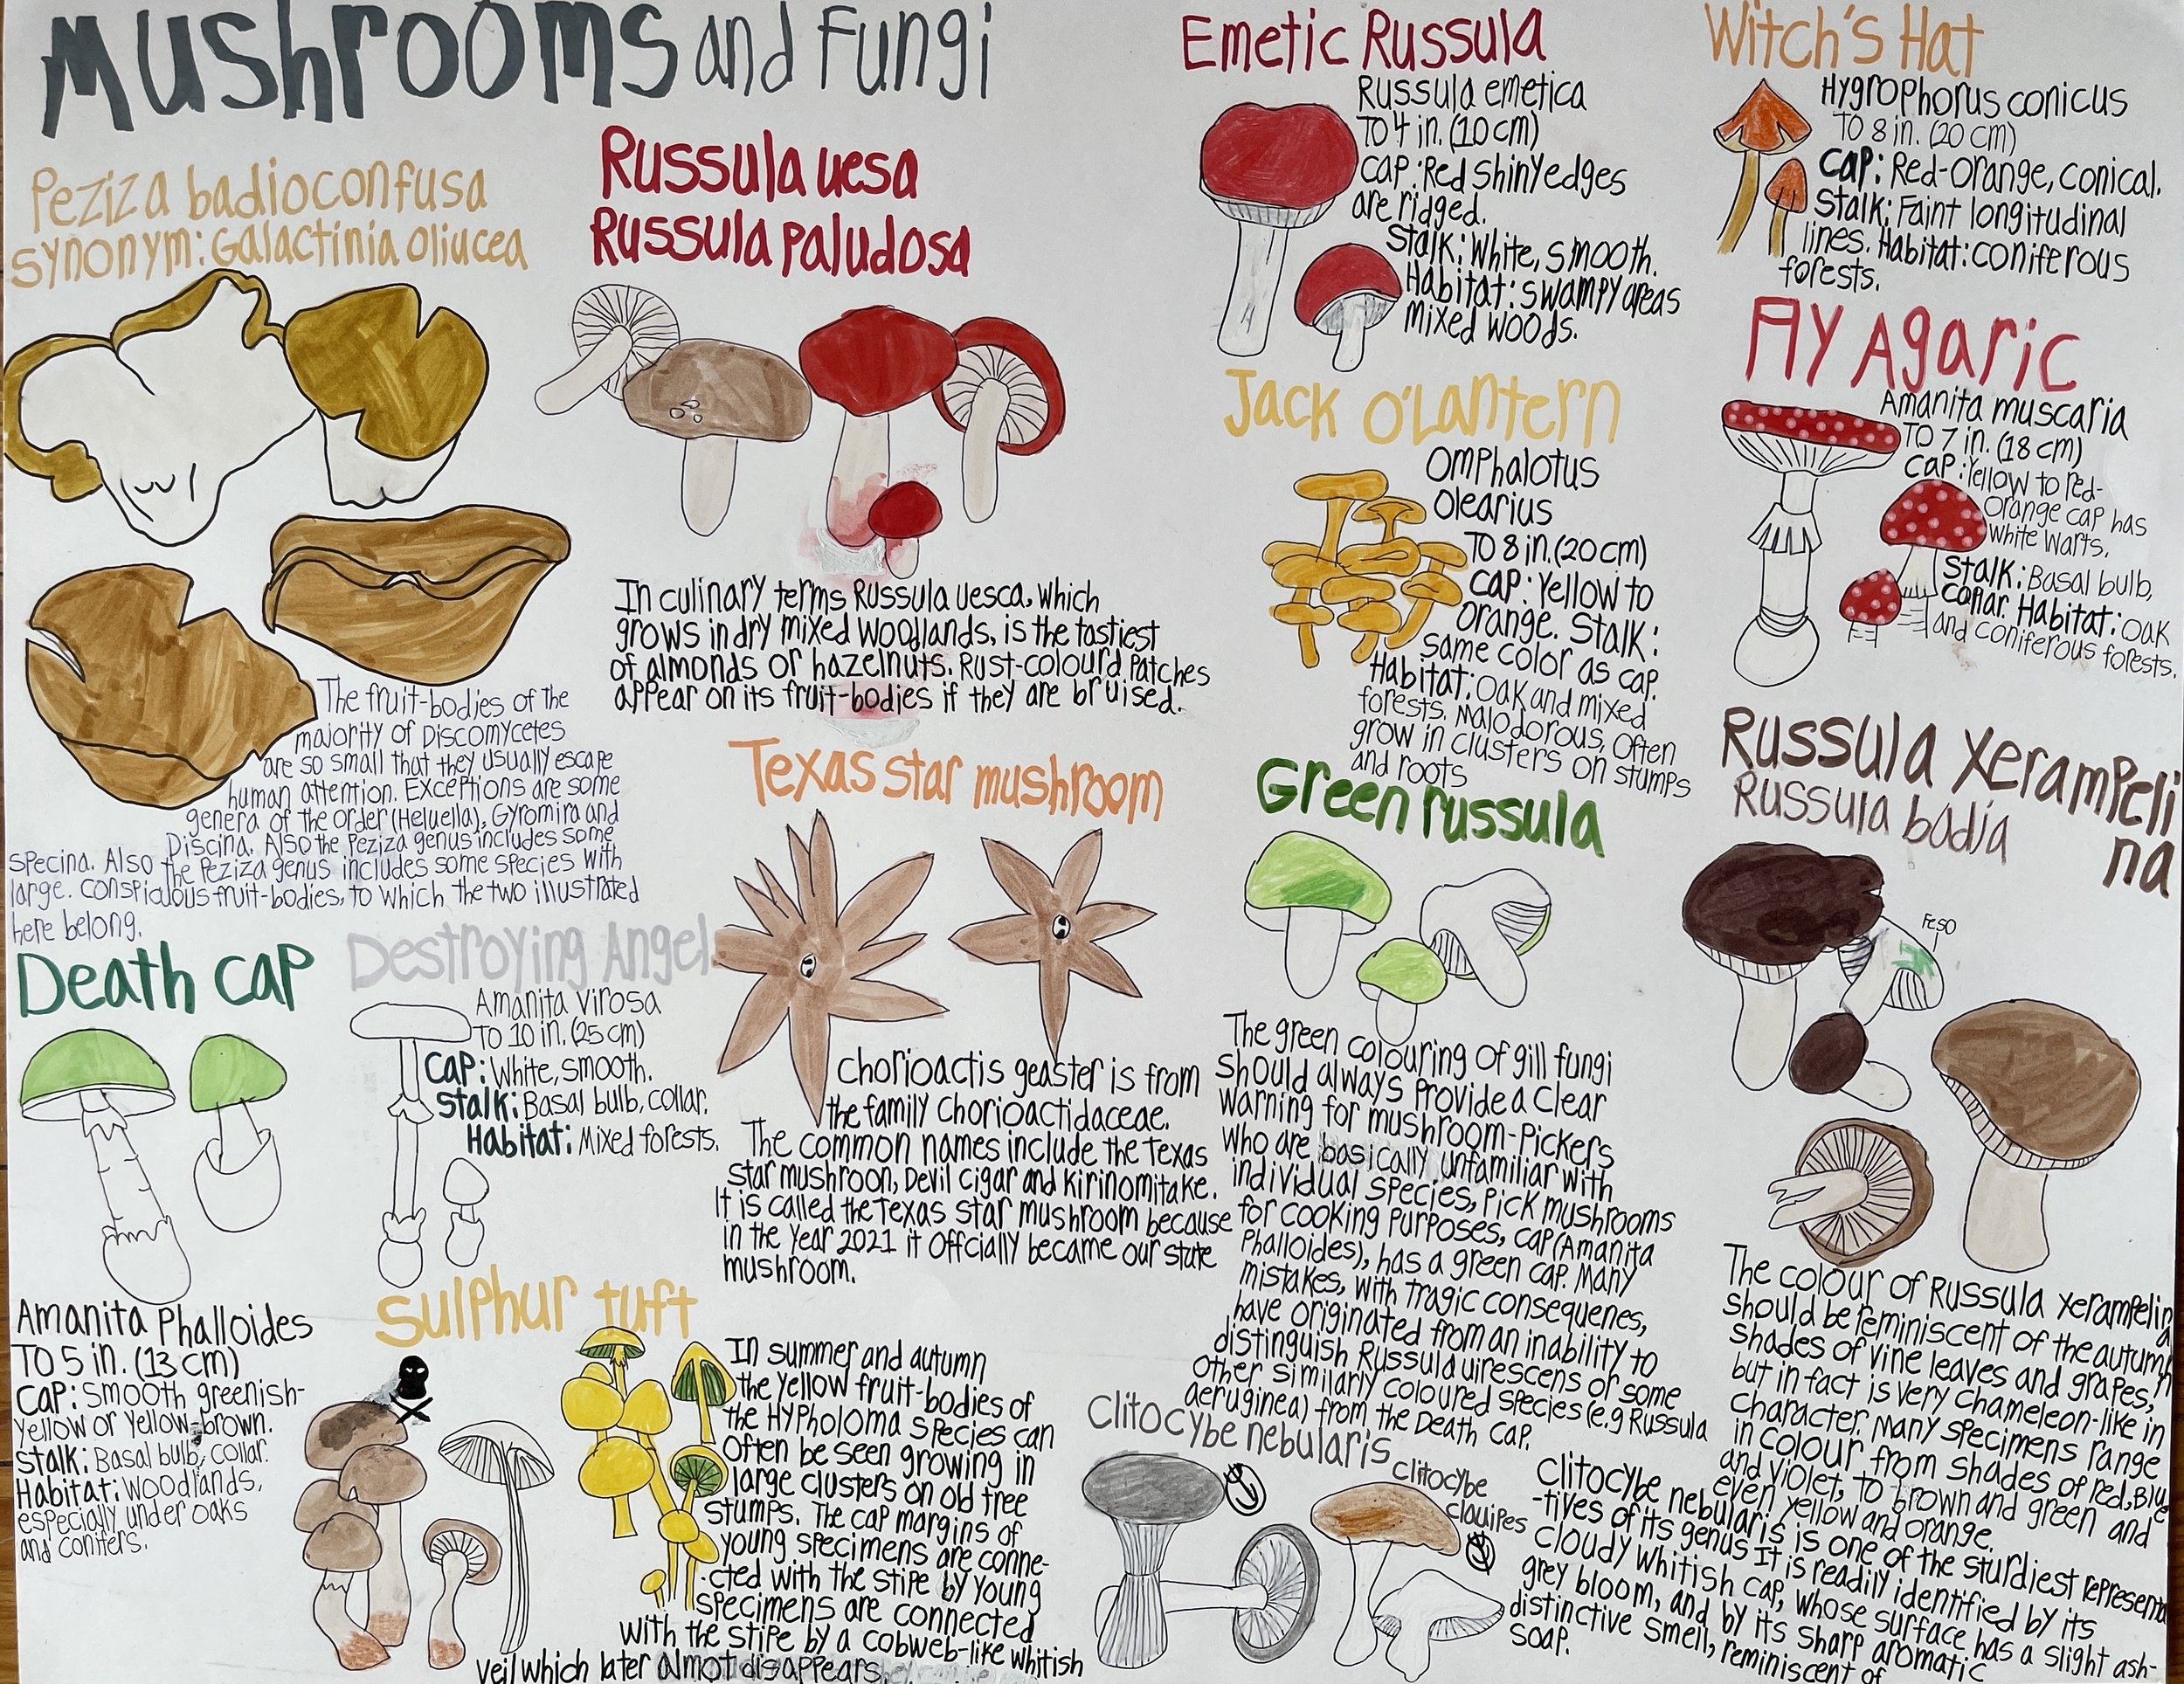 Mushrooms and Fungi
Peziza badioconfusa
synonym: Galactinia oliucea
The fruit-bodies of the
majority of Discomycetes
are so small that they usually escape
human attention. Exceptions are some
genera of the order (Heluella), Gyromira and
Discina. Also the Peziza genus includes some
specina. Also the Peziza genus includes some species with
large. conspicuous fruit-bodies, to which the two illustrated
here belong.
Russula uesa
Russula paludosa
In culinary terms Russula uesca, which
grows in dry mixed woodlands, is the tastiest
of almonds or hazelnuts. Rust-colourd patches
appear on its fruit-bodies if they are bruised.
Emetic Russula
Russula emetica
To 4 in. (10 cm)
Cap: Red shiny edges
are ridged.
Stalk: White, smooth.
Habitat: swampy areas
mixed woods.
Witch's Hat
Hygrophorus conicus
To 8 in. (20 cm)
Cap: Red-orange, conical.
Stalk: Faint longitudinal
lines. Habitat: coniferous
forests.
Jack O'Lantern
Omphalotus
olearius
To 8 in. (20 cm)
Cap: Yellow to
orange. Stalk:
same color as cap.
Habitat: Oak and mixed
forests. Malodorous, Often
grow in clusters on stumps
and roots
Fly Agaric
Amanita muscaria
To 7 in. (18 cm)
Cap: Yellow to red-
orange cap has
white warts.
Stalk: Basal bulb,
Collar. Habitat: Oak
and coniferous forests.
Death Cap
Amanita Phalloides
To 5 in. (13 cm)
Cap: Smooth greenish-
yellow or yellow-brown.
Stalk: Basal bulb, collar.
Habitat: Woodlands,
especially under oaks
and conifers.
Destroying Angel
Amanita virosa
To 10 in. (25 cm)
Cap: White, smooth.
Stalk: Basal bulb, collar.
Habitat: Mixed forests.
Texas star mushroom
Chorioactis geaster is from
the family Chorioactidaceae.
The common names include the Texas
star mushroon, Devil cigar and Kirinomitake.
It is called the Texas star mushroom because
in the year 2021 it offcially became our state
mushroom.
Green russula
The green colouring of gill fungi
should always provide a clear
warning for mushroom-pickers
who are basically unfamiliar with
individual species, pick mushrooms
for cooking purposes, cap (Amanita
Phalloides), has a green cap. Many
mistakes, with tragic consequenes,
have originated from an inability to
distinguish Russula uirescens or some
other similarly coloured species (e.g Russula
aeruginea) from the Death Cap.
Russula xerampeli
na
Russula badia
Feso
The colour of Russula xerampelin
a
should be reminiscent of the autumn
shades of vine leaves and grapes,
but in fact is very chameleon-like in
character. Many specimens range
in colour from shades of red, blue
and violet, to brown and green and
even yellow and orange.
Sulphur tuft
In summer and autumn
the yellow fruit-bodies of
the Hypholoma species can
often be seen growing in
large clusters on old tree
stumps. The cap margins of
young specimens are conne-
cted with the stipe by young
specimens are connected
with the stipe by a cobweb-like whitish
veil which later almot disappears.
Clitocybe nebularis
Clitocybe
clauipes
Clitocybe nebularis is one of the sturdiest representa
-tives of its genus It is readily identified by its
cloudy whitish cap, whose surface has a slight ash-
grey bloom, and by its sharp aromatic
distinctive smell, reminiscent of
soap.